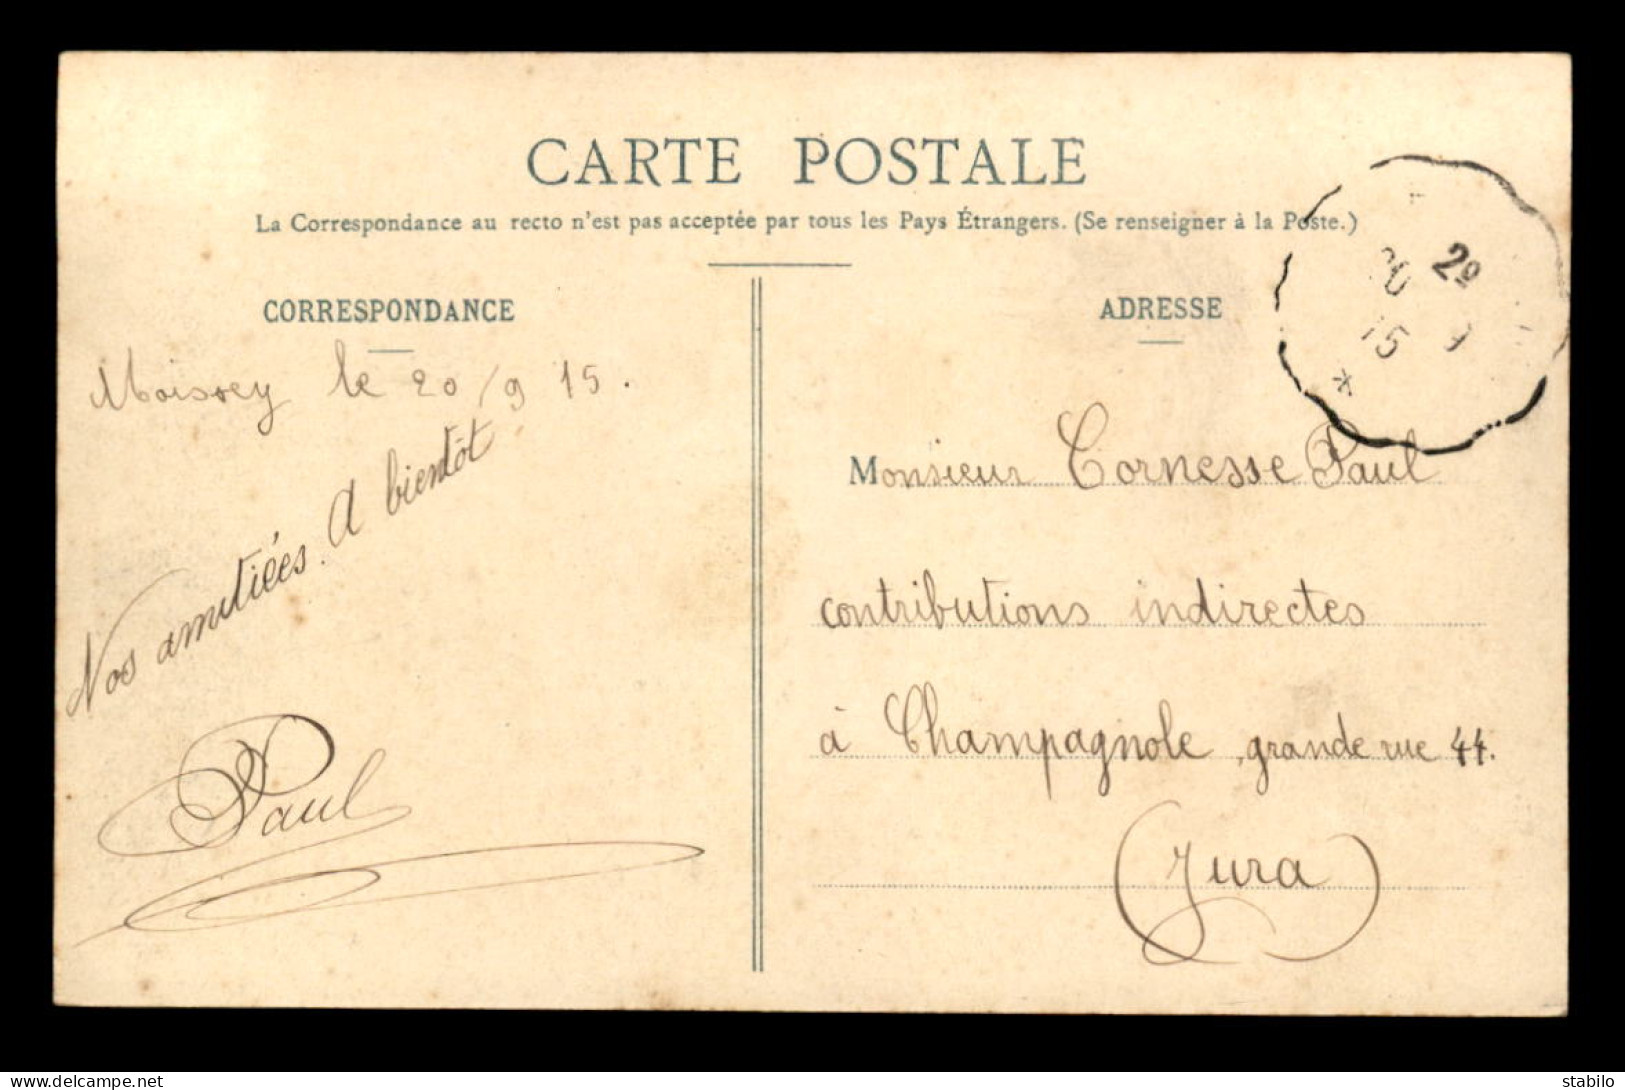 CARTE POSTALE
La Correspondance au recto n'est pas acceptée par tous les Pays Étrangers. (Se renseigner à la Poste.)
CORRESPONDANCE
Moissey le 20/9 15.
Nos amitiées. A bientôt
Paul
ADRESSE
2º
20 9
15
*
Monsieur Cornesse Paul
contributions indirectes
à Champagnole, grande rue 44.
(Jura)
delcampe.net
stabilo